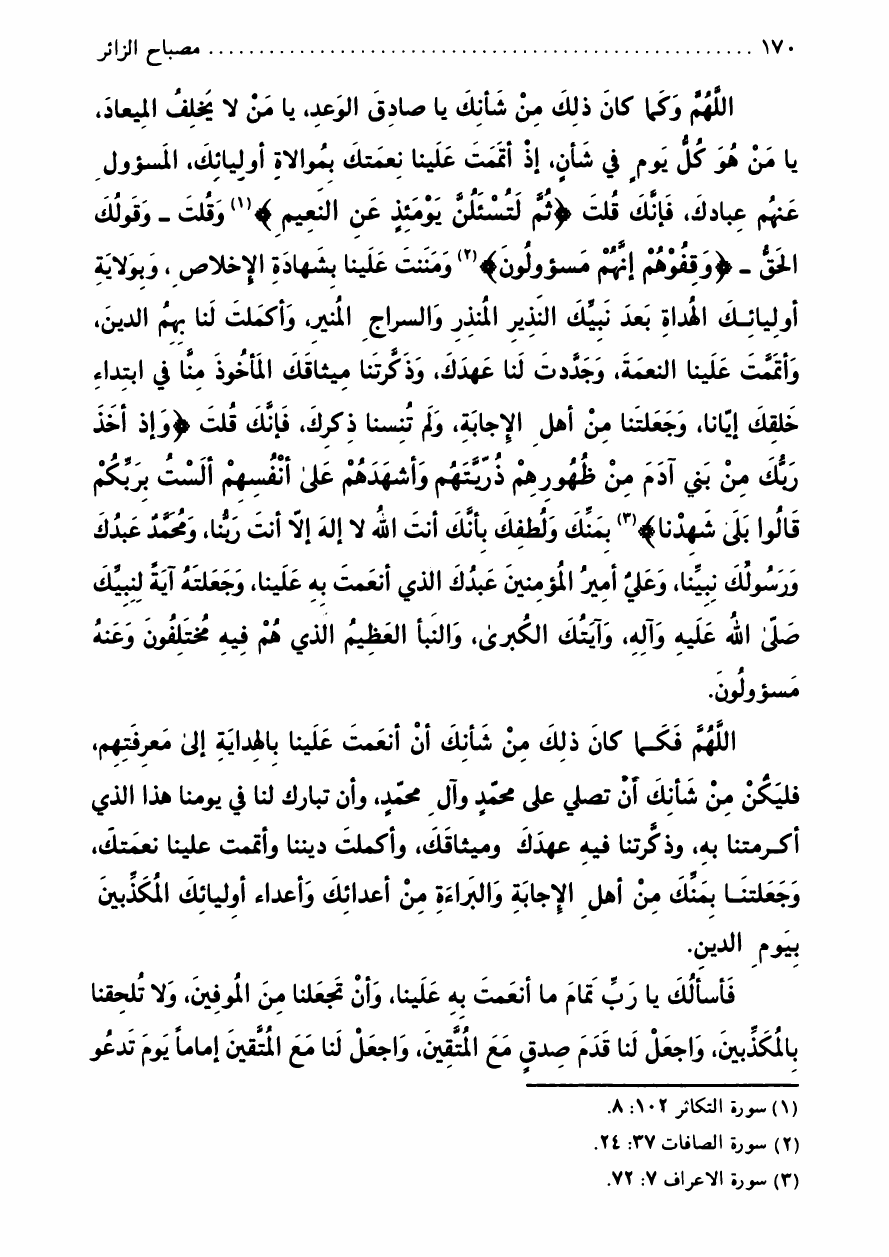 ١٧٠ ...................................................... مصباح الزائر
اللَّهُمَّ وَكَما كانَ ذلِكَ مِنْ شَأنِكَ يا صادِقَ الوَعدِ، يا مَنْ لا يُخلِفُ الميعادَ،
يا مَنْ هُوَ كُلَّ يَومٍ في شَأنٍ، إذْ أتمَمَتَ عَلَينا نِعمَتكَ بِمُوالاةِ أولِيائِكَ، المَسؤولِ
عَنهُم عِبادكَ، فَإنَّكَ قُلتَ ﴿ثُمَّ لَتُسْئَلُنَّ يَوْمَئِذٍ عَنِ النَعيمِ﴾(١) وَقُلتَ ـ وَقَولُكَ
الحَقُّ ـ ﴿وَقِفُوْهُمْ إنَّهُمْ مَسؤولُونَ﴾(٢) وَمَنَنتَ عَلَينا بِشَهادَةِ الإخلاصِ، وَبِوَلايَةِ
أولِيائِـكَ الهُداةِ بَعدَ نَبِيِّكَ النَذيرِ المُنذِرِ وَالسراجِ المُنيرِ، وَأكمَلتَ لَنا بِهِمُ الدينَ،
وَأتمَّتَ عَلَينا النعمَةَ، وَجَدَّدتَ لَنا عَهدَكَ، وَذَكَّرتَنا ميثاقَكَ المَأخُوذَ مِنَّا في ابتِداءِ
خَلقِكَ إيّانا، وَجَعَلتَنا مِنْ أهلِ الإجابَةِ، وَلَم تُنسنا ذِكرَكَ، فَإنَّكَ قُلتَ ﴿وَإذ أخَذَ
رَبُّكَ مِنْ بَني آدَمَ مِنْ ظُهُورِهِمْ ذُرّيَّتَهُم وَأشهَدَهُمْ عَلىٰ أنْفُسِهِمْ ألَسْتُ بِرَبِّكُمْ
قَالُوا بَلىَٰ شَهِدْنا﴾(٣) بِمَنِّكَ وَلُطفِكَ بِأنَّكَ أنتَ اللهُ لا إلهَ إلّا أنتَ رَبُّنا، وَمُحَمَّدٌ عَبدُكَ
وَرَسُولُكَ نَبِيِّنا، وَعَليٌ أميرُ المُؤمِنينَ عَبدُكَ الذي أنعَمتَ بِه عَلَينا، وَجَعَلتَهُ آيَةً لِنبِيِّكَ
صَلّىٰ اللهُ عَلَيهِ وَآلِهِ، وَآيَتُكَ الكُبرىٰ، وَالنَبأ العَظِيمُ الذي هُمْ فيهِ مُختَلِفُونَ وَعَنهُ
مَسؤولُونَ.
اللَّهُمَّ فَكَـما كانَ ذلِكَ مِنْ شَأنِكَ أنْ أنعَمتَ عَلَينا بِالهِدايَةِ إلىٰ مَعرِفَتِهِم،
فليَكُنْ مِنْ شَأنِكَ أنْ تصلي على محمّدٍ وآلِ محمّدٍ، وأن تبارك لنا في يومنا هذا الذي
أكـرمتنا به، وذكَّرتنا فيهِ عهدَكَ وميثاقَكَ، وأكملتَ ديننا وأتممت علينا نعمَتكَ،
وَجَعَلتنَـا بِمَنِّكَ مِنْ أهلِ الإجابَةِ وَالبَراءَةِ مِنْ أعدائكَ وَأعداء أوليائِكَ المُكَذِّبينَ
بِيَومِ الدينِ.
فَأسألُكَ يا رَبِّ تَمامَ ما أنعَمتَ بِهِ عَلَينا، وَأنْ تَجعَلنا مِنَ المُوفينَ، وَلا تُلحِقنا
بِالمُكَذِّبينَ، وَاجعَلْ لَنا قَدَمَ صِدقٍ مَعَ المُتَّقِينَ، وَاجعَلْ لَنا مَعَ المُتَّقينَ إماماً يَومَ تَدعُو
(١) سورة التكاثر ١٠٢: ٨.
(٢) سورة الصافات ٣٧: ٢٤.
(٣) سورة الاعراف ٧: ٧٢.